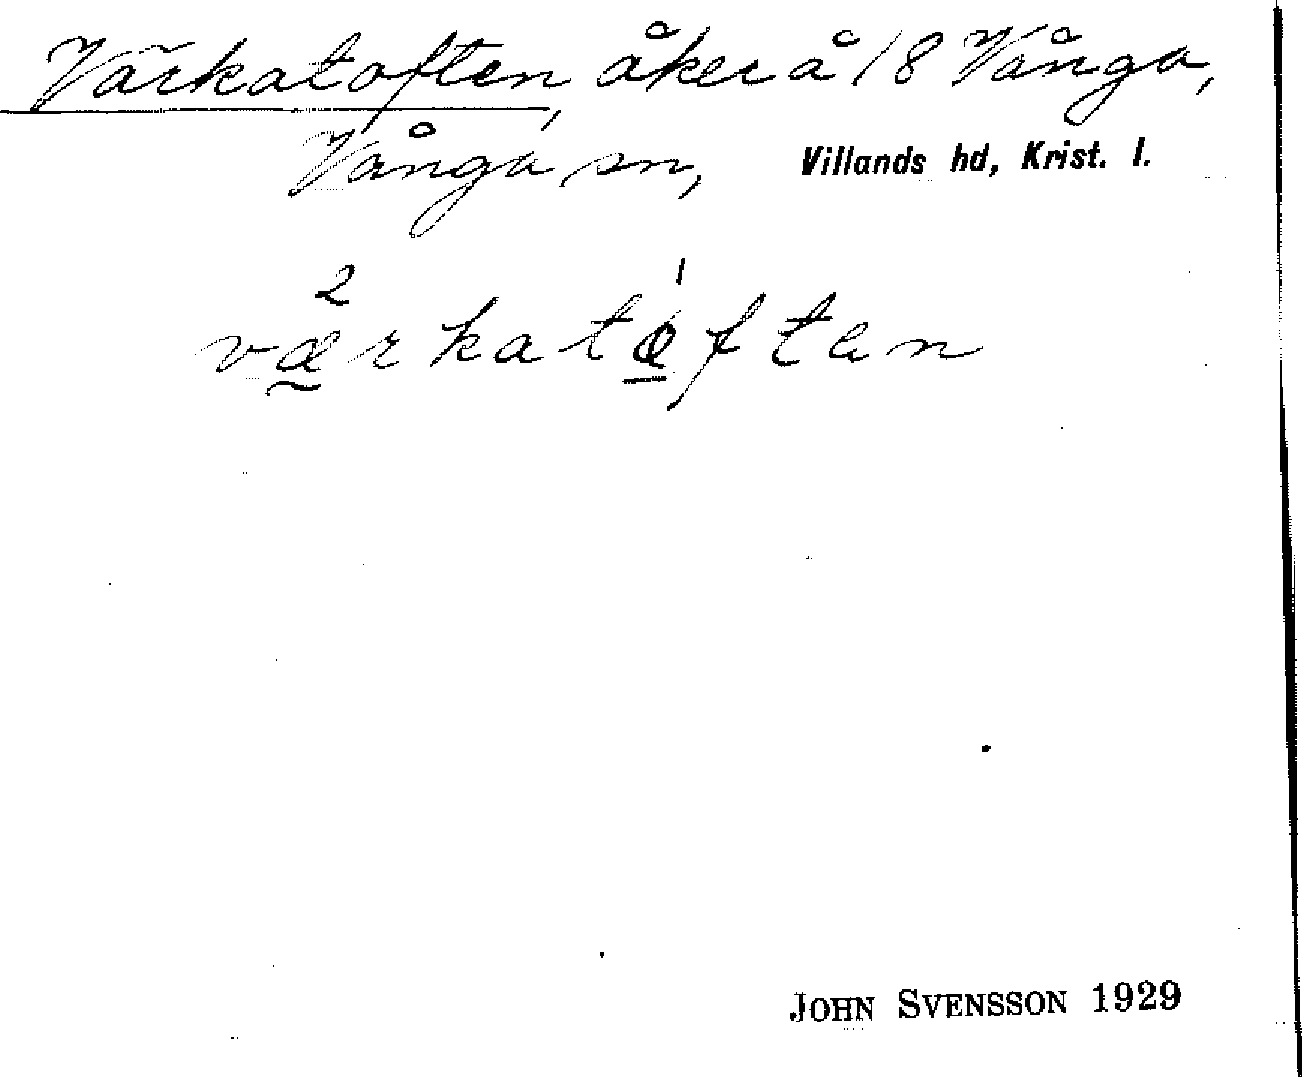 Värkatoften, åker å 18 Vånga,
Vånga sn, Villands hd, Krist. l.
2 1
værkatoftan
JOHN SVENSSON 1929